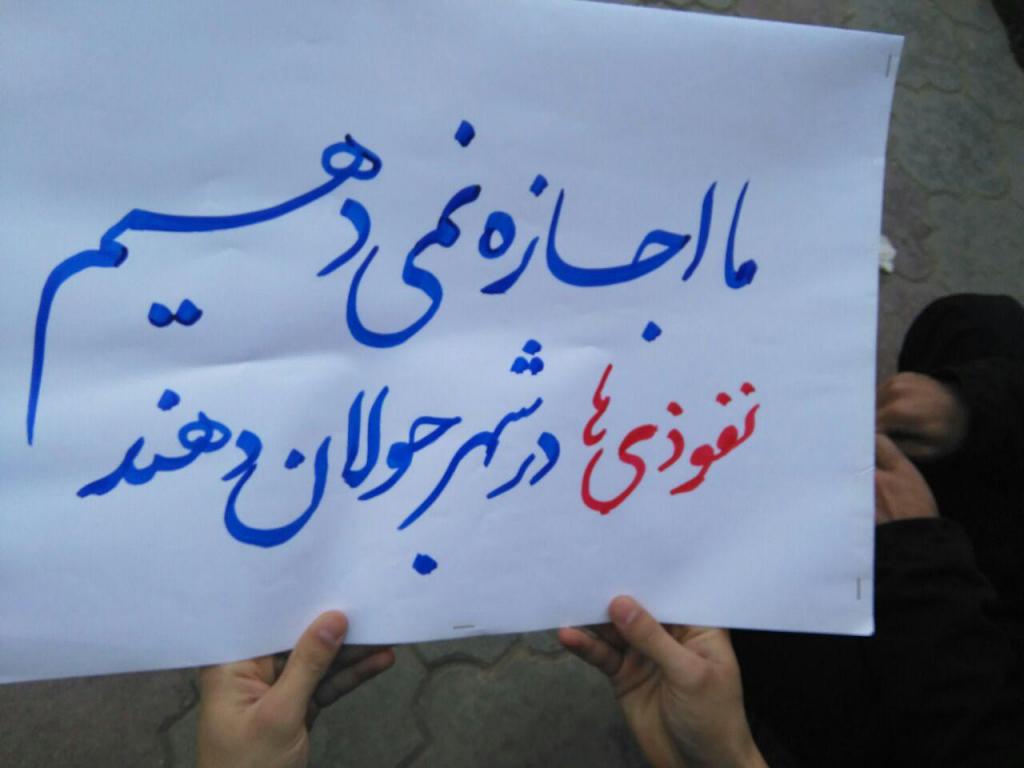 ما اجازه نمی دهیم
نفوذی ها در شهر جولان دهند